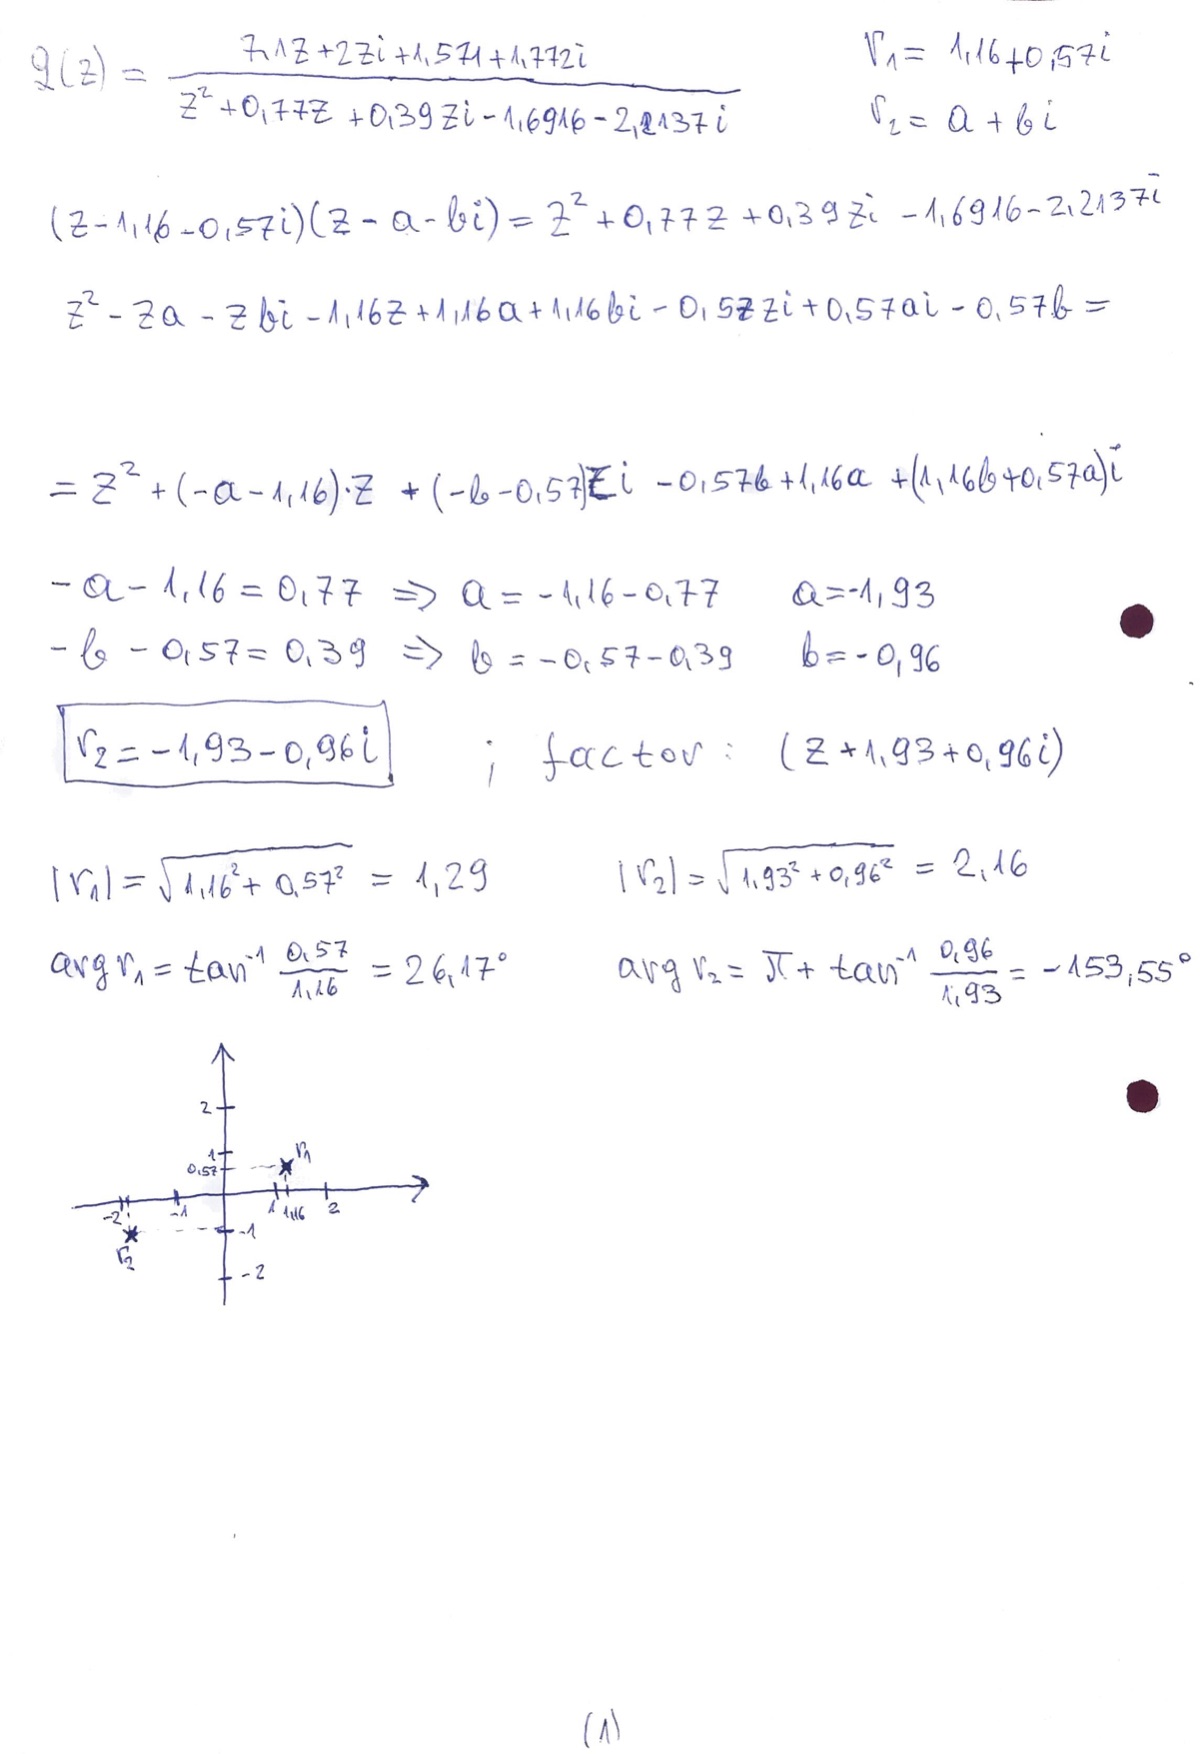 g(z) = (7,1z+2zi+1,571+1,772i)/(z²+0,77z+0,39zi-1,6916-2,2137i)
r₁ = 1,16+0,57i
r₂ = a + bi
(z-1,16-0,57i)(z-a-bi) = z²+0,77z+0,39zi-1,6916-2,2137i
z²-za-zbi-1,16z+1,16a+1,16bi-0,57zi+0,57ai-0,57b =
= z²+(-a-1,16)·z+(-b-0,57)zi-0,57b+1,16a+(1,16b+0,57a)i
-a-1,16=0,77 ⇒ a=-1,16-0,77 a=-1,93
-b-0,57=0,39 ⇒ b=-0,57-0,39 b=-0,96
r₂=-1,93-0,96i ; factor: (z+1,93+0,96i)
|r₁|=√(1,16²+0,57²) = 1,29 |r₂|=√(1,93²+0,96²) = 2,16
arg r₁ = tan⁻¹ 0,57/1,16 = 26,17° arg r₂ = π + tan⁻¹ 0,96/1,93 = -153,55°
2
1
0,57
r₁
-2
-1
1
1,16
2
r₂
-1
-2
(1)